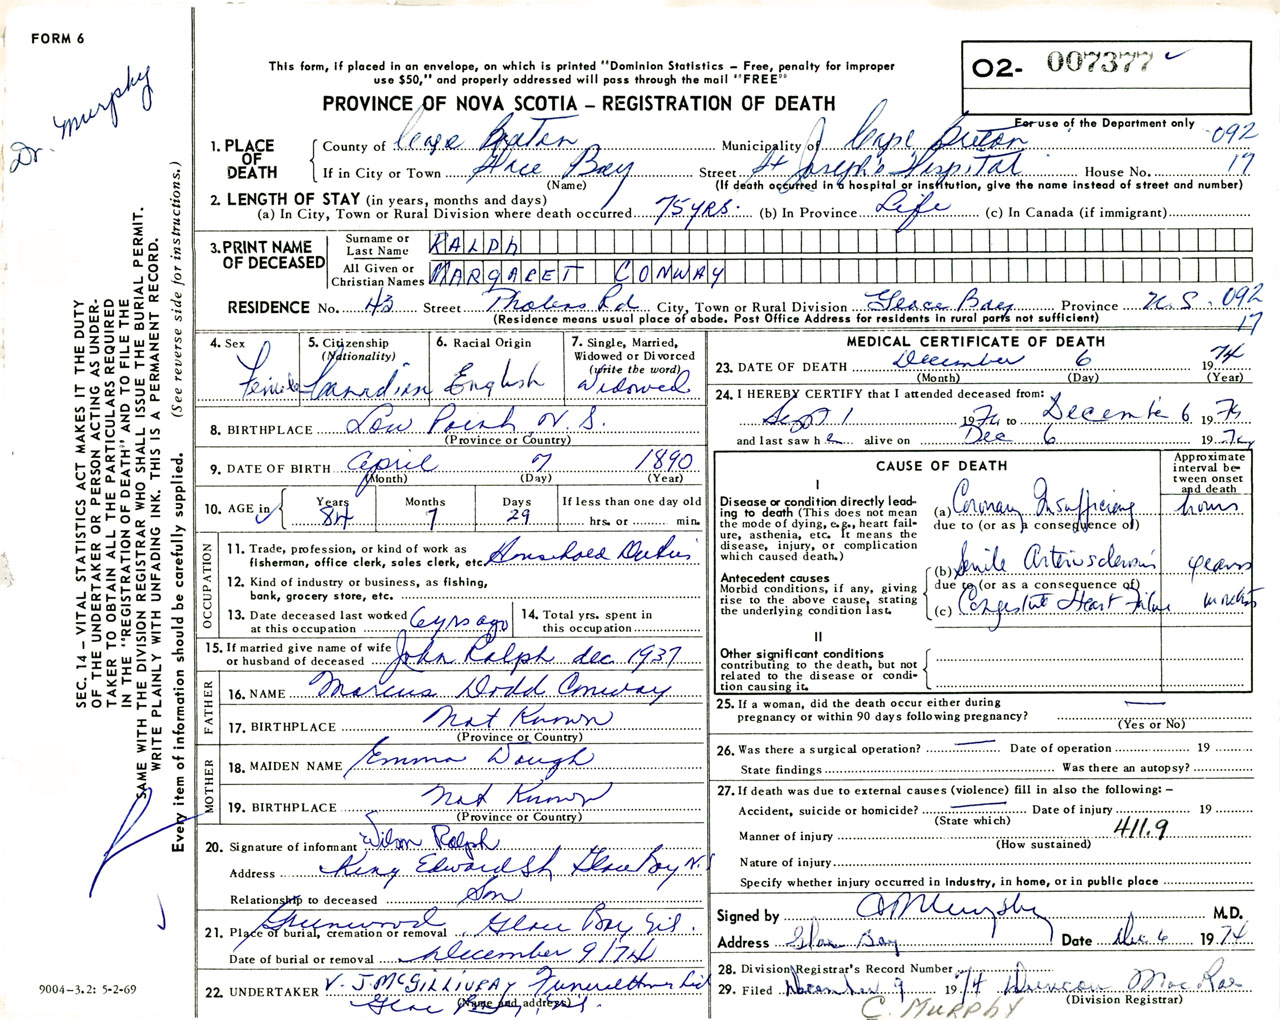 FORM 6
Dr. Murphy
This form, if placed in an envelope, on which is printed "Dominion Statistics – Free, penalty for improper
use $50," and properly addressed will pass through the mail "FREE"
PROVINCE OF NOVA SCOTIA – REGISTRATION OF DEATH
O2- 007377
For use of the Department only
1. PLACE OF DEATH County of Cape Breton Municipality of Cape Breton 092
If in City or Town Glace Bay Street St Joseph's Hospital House No. 17
(Name) (If death occurred in a hospital or institution, give the name instead of street and number)
2. LENGTH OF STAY (in years, months and days)
(a) In City, Town or Rural Division where death occurred 75 yrs. (b) In Province Life (c) In Canada (if immigrant)
3. PRINT NAME OF DECEASED Surname or Last Name RALPH
All Given or Christian Names MARGARET CONWAY
RESIDENCE No. 43 Street Rd City, Town or Rural Division Glace Bay Province N.S. 092
(Residence means usual place of abode. Post Office Address for residents in rural parts not sufficient) 17
4. Sex Female
5. Citizenship (Nationality) Canadian
6. Racial Origin English
7. Single, Married, Widowed or Divorced (write the word) Widowed
8. BIRTHPLACE Low Point, N.S.
(Province or Country)
9. DATE OF BIRTH April 7 1890
(Month) (Day) (Year)
10. AGE in Years 84 Months 7 Days 29 If less than one day old
hrs. or min.
OCCUPATION
11. Trade, profession, or kind of work as
fisherman, office clerk, sales clerk, etc. Household Duties
12. Kind of industry or business, as fishing,
bank, grocery store, etc.
13. Date deceased last worked at this occupation 6 yrs ago
14. Total yrs. spent in this occupation
15. If married give name of wife
or husband of deceased John Ralph dec. 1937
FATHER
16. NAME Marcus Dodd Conway
17. BIRTHPLACE Not Known
(Province or Country)
MOTHER
18. MAIDEN NAME Emma Waugh
19. BIRTHPLACE Not Known
(Province or Country)
20. Signature of informant Wilson Ralph
Address King Edward St. Glace Bay N.S
Relationship to deceased Son
21. Place of burial, cremation or removal Greenwood Glace Bay
Date of burial or removal December 9/74
22. UNDERTAKER V. J. McGILLIVRAY Funeral Home Ltd
(Name and address) Glace Bay, N.S.
MEDICAL CERTIFICATE OF DEATH
23. DATE OF DEATH December 6 1974
(Month) (Day) (Year)
24. I HEREBY CERTIFY that I attended deceased from:
Sept 1 1974 to December 6 1974
and last saw her alive on Dec 6 1974
CAUSE OF DEATH
Approximate interval between onset and death
I
Disease or condition directly lead-
ing to death (This does not mean
the mode of dying, e.g., heart fail-
ure, asthenia, etc. It means the
disease, injury, or complication
which caused death.)
(a) Coronary Insufficiency hours
due to (or as a consequence of)
Antecedent causes
Morbid conditions, if any, giving
rise to the above cause, stating
the underlying condition last.
(b) Senile Arteriosclerosis years
due to (or as a consequence of)
(c) Congestive Heart Failure months
II
Other significant conditions
contributing to the death, but not
related to the disease or condi-
tion causing it.
25. If a woman, did the death occur either during
pregnancy or within 90 days following pregnancy? —
(Yes or No)
26. Was there a surgical operation? — Date of operation 19
State findings Was there an autopsy?
27. If death was due to external causes (violence) fill in also the following: –
Accident, suicide or homicide? — Date of injury 19
(State which)
Manner of injury 411.9
(How sustained)
Nature of injury
Specify whether injury occurred in industry, in home, or in public place
Signed by Murphy M.D.
Address Glace Bay Date Dec 6 1974
28. Division Registrar's Record Number
29. Filed December 9 1974 Duncan MacRae
(Division Registrar)
C. MURPHY
SEC. 14 – VITAL STATISTICS ACT MAKES IT THE DUTY
OF THE UNDERTAKER OR PERSON ACTING AS UNDER-
TAKER TO OBTAIN ALL THE PARTICULARS REQUIRED
IN THE "REGISTRATION OF DEATH" AND TO FILE THE
SAME WITH THE DIVISION REGISTRAR WHO SHALL ISSUE THE BURIAL PERMIT.
WRITE PLAINLY WITH UNFADING INK. THIS IS A PERMANENT RECORD.
Every item of information should be carefully supplied. (See reverse side for instructions.)
9004-3.2: 5-2-69